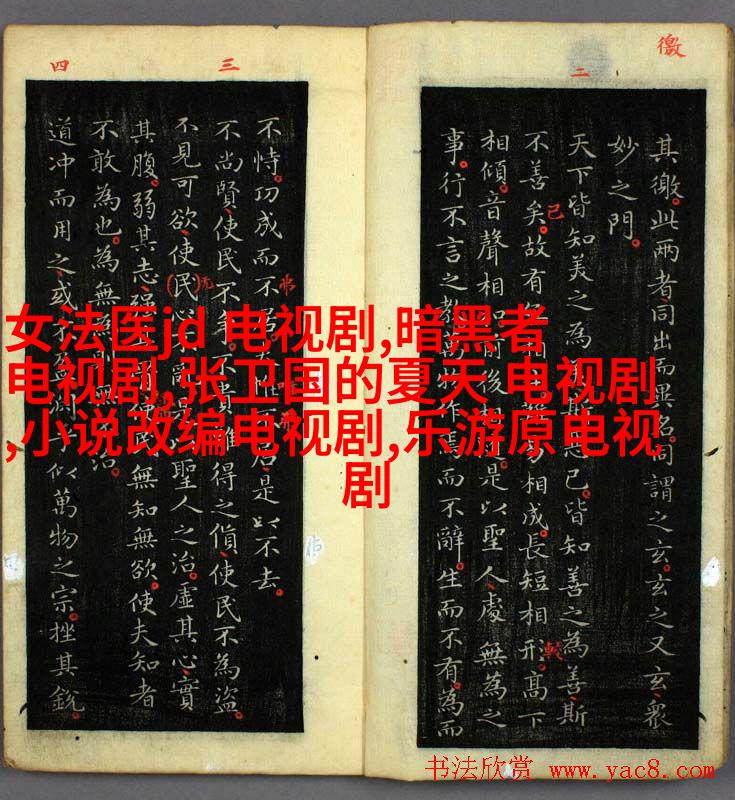 徼
二
三
四
其徼。此兩者同出而異名。同謂之玄。玄之又玄。衆
妙之門。
天下皆知美之為 已。皆知善之為善斯
不善矣。故有 相 相成。長短相形。高下
相傾。音聲相和。前後 是以聖人處無為之
事。行不言之教 作焉而不辭。生而不有。為而
不恃。功成而不居 是以不去。
不尚賢。使民不爭。不貴難得之貨。使民不為盜。
不見可欲。使民心 聖人之治。虛其心。實
其腹。弱其志。强 使民無知無欲。使夫知者
不敢為也。為無 治。
道冲而用之。或 似萬物之宗。挫其銳。
女法医jd 电视剧,暗黑者
电视剧,张卫国的夏天 电视剧
,小说改编电视剧,乐游原电视
剧
书法欣赏 www.yac8.com